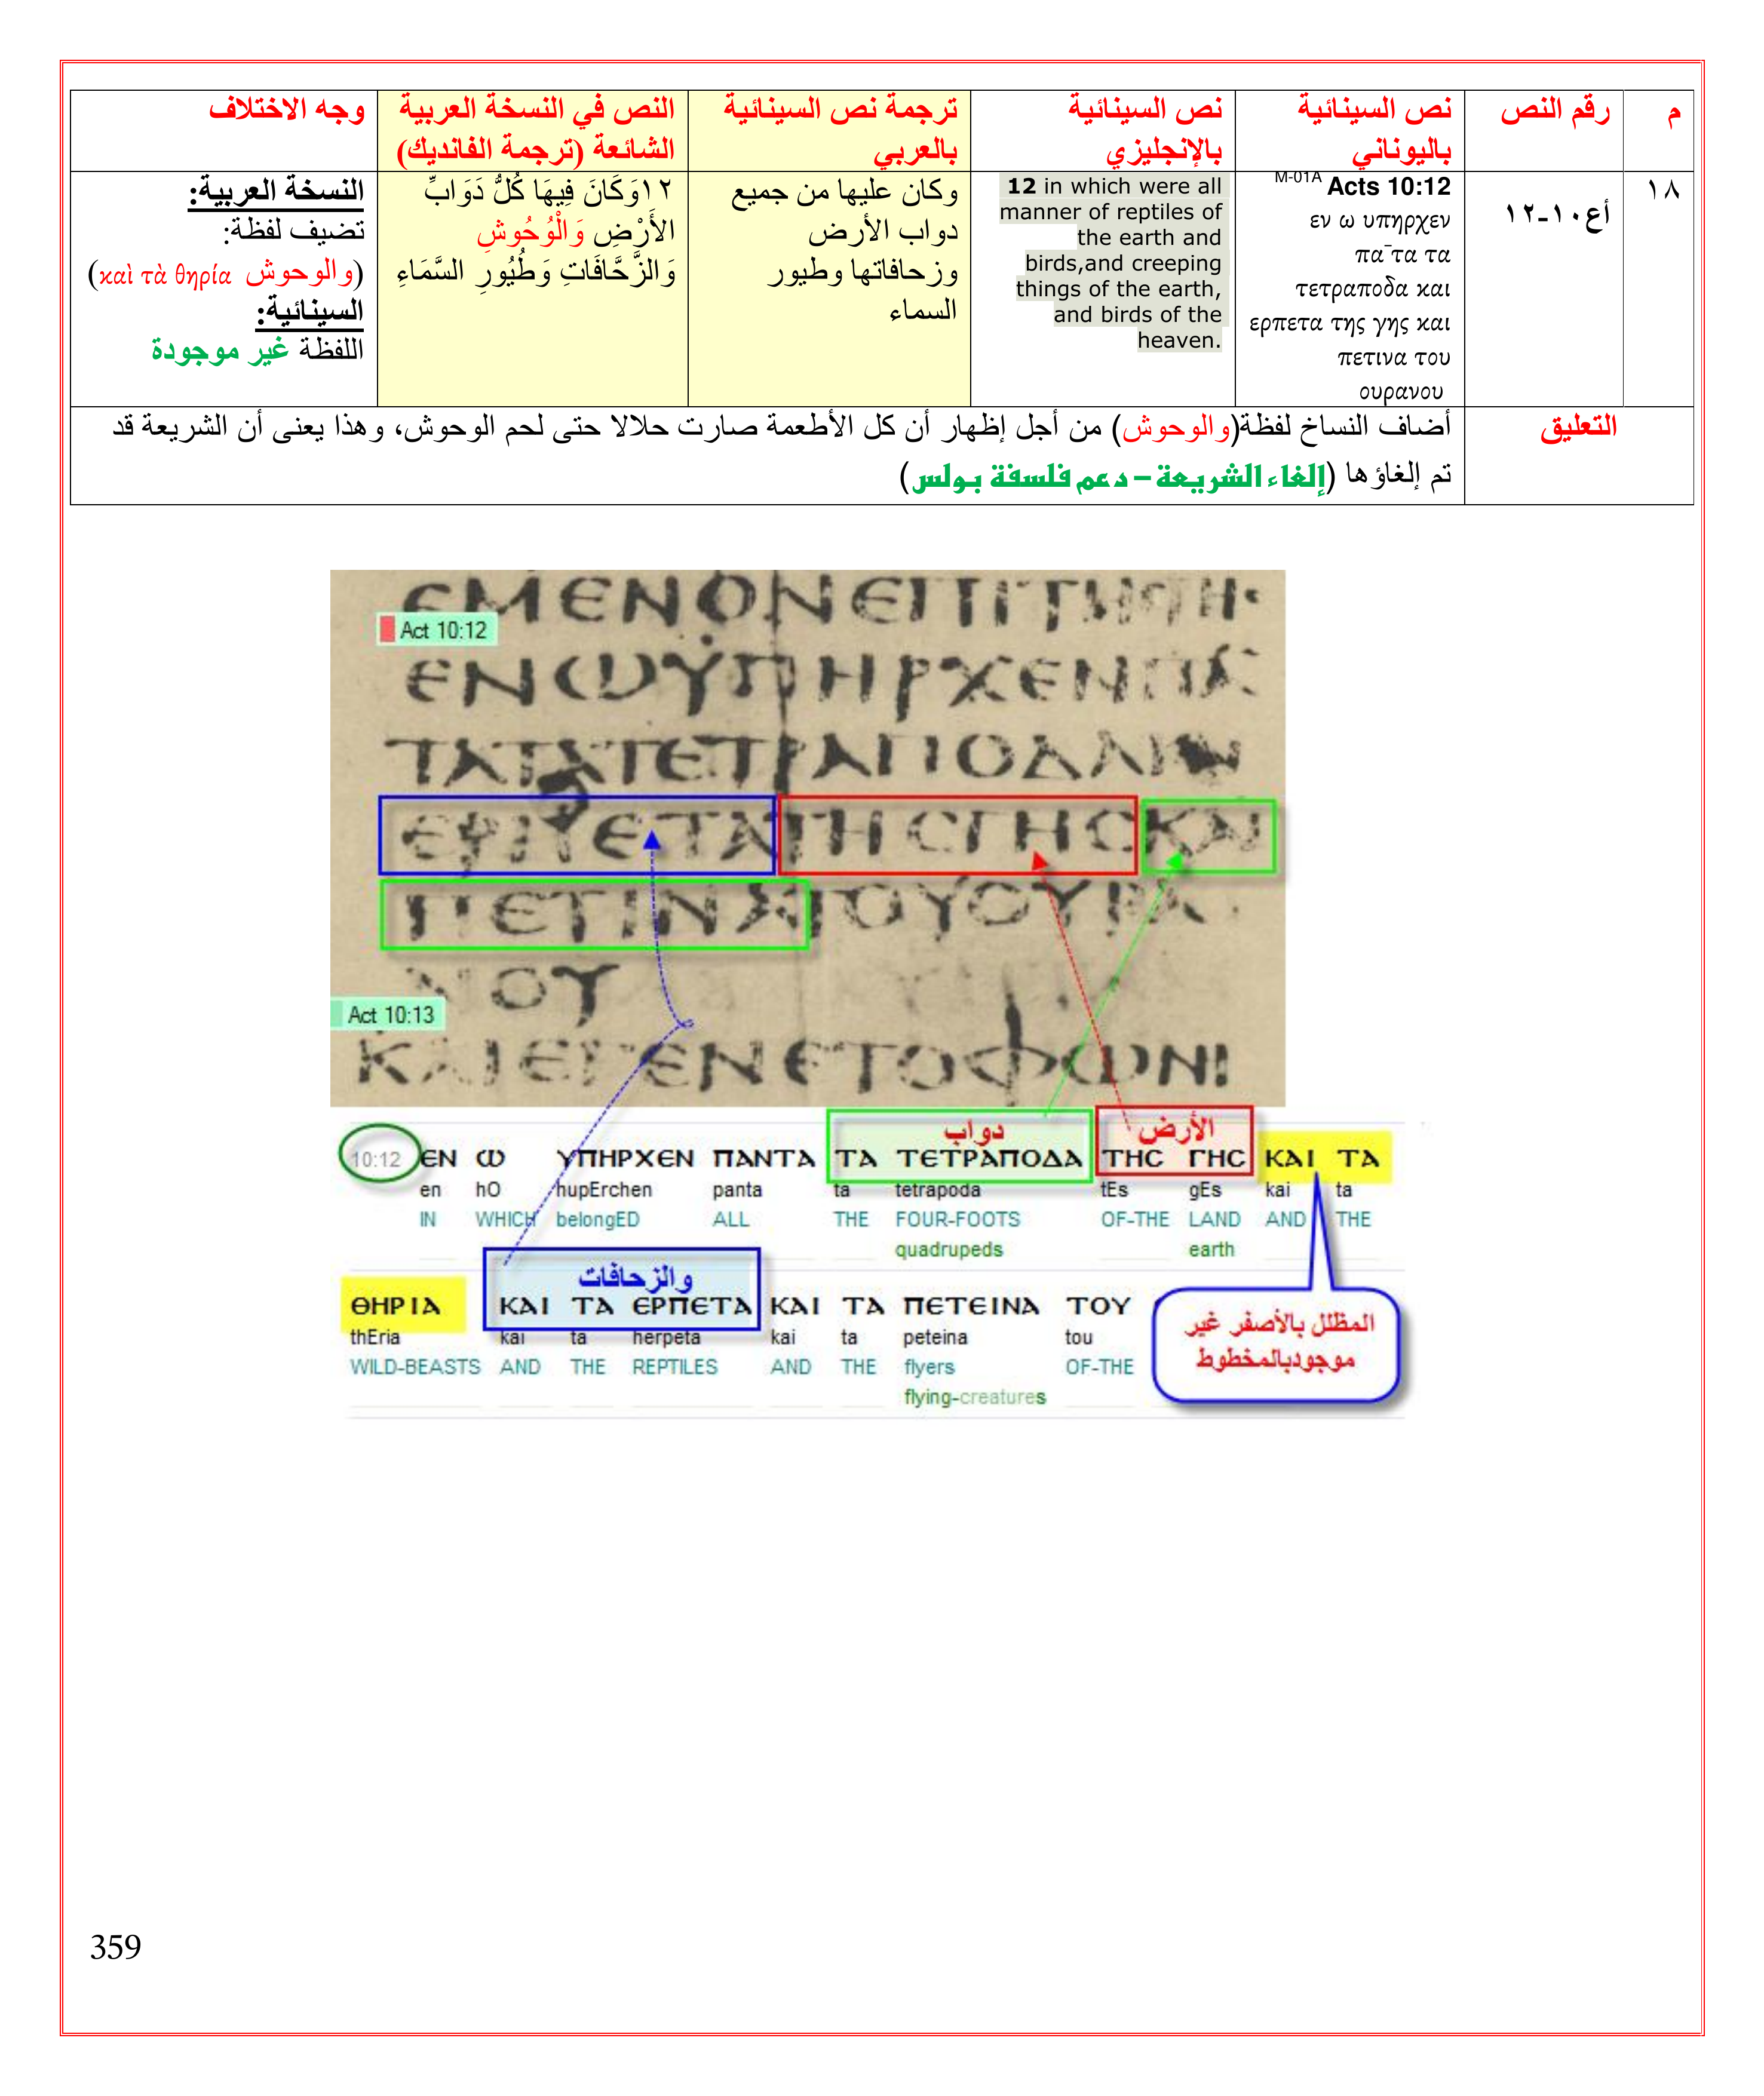 م
رقم النص
نص السينائية
باليوناني
نص السينائية
بالإنجليزي
ترجمة نص السينائية
بالعربي
النص في النسخة العربية
الشائعة (ترجمة الفانديك)
وجه الاختلاف
١٨
أع١٠-١٢
M-01A Acts 10:12
εν ω υπηρχεν
πα¯τα τα
τετραποδα και
ερπετα της γης και
πετινα του
ουρανου
12 in which were all
manner of reptiles of
the earth and
birds,and creeping
things of the earth,
and birds of the
heaven.
وكان عليها من جميع
دواب الأرض
وزحافاتها وطيور
السماء
١٢وَكَانَ فِيهَا كُلُّ دَوَابِّ
الأَرْضِ وَالْوُحُوشِ
وَالزَّحَّافَاتِ وَطُيُورِ السَّمَاءِ
النسخة العربية:
تضيف لفظة:
(والوحوش καὶ τὰ θηρία)
السينائية:
اللفظة غير موجودة
التعليق
أضاف النساخ لفظة(والوحوش) من أجل إظهار أن كل الأطعمة صارت حلالا حتى لحم الوحوش، وهذا يعنى أن الشريعة قد
تم إلغاؤها (إلغاء الشريعة – دعم فلسفة بولس)
ΕΜΕΝΟΝΕΠΙΤΗΓΗ·
Act 10:12
ΕΝωΫΠΗΡΧΕΝΠΑ
ΤΑΤΑΤΕΤΡΑΠΟΔΑΚΑΙ
ΕΡΠΕΤΑΤΗСΓΗСΚΑΙ
ΠΕΤΙΝΑΤΟΥΟΥΡΑ
ΝΟΥ
Act 10:13
ΚΑΙΕΓΕΝΕΤΟΦωΝΙ
دواب الأرض
10:12 ЄΝ ω ΥΠΗΡΧЄΝ ΠΑΝΤΑ ΤΑ ΤЄΤΡΑΠΟΔΑ ΤΗС ΓΗС ΚΑΙ ΤΑ
en hO hupErchen panta ta tetrapoda tEs gEs kai ta
IN WHICH belongED ALL THE FOUR-FOOTS OF-THE LAND AND THE
quadrupeds earth
والزحافات
ΘΗΡΙΑ ΚΑΙ ΤΑ ЄΡΠЄΤΑ ΚΑΙ ΤΑ ΠЄΤЄΙΝΑ ΤΟΥ
thEria kai ta herpeta kai ta peteina tou
WILD-BEASTS AND THE REPTILES AND THE flyers OF-THE
flying-creatures
المظلل بالأصفر غير
موجودبالمخطوط
359